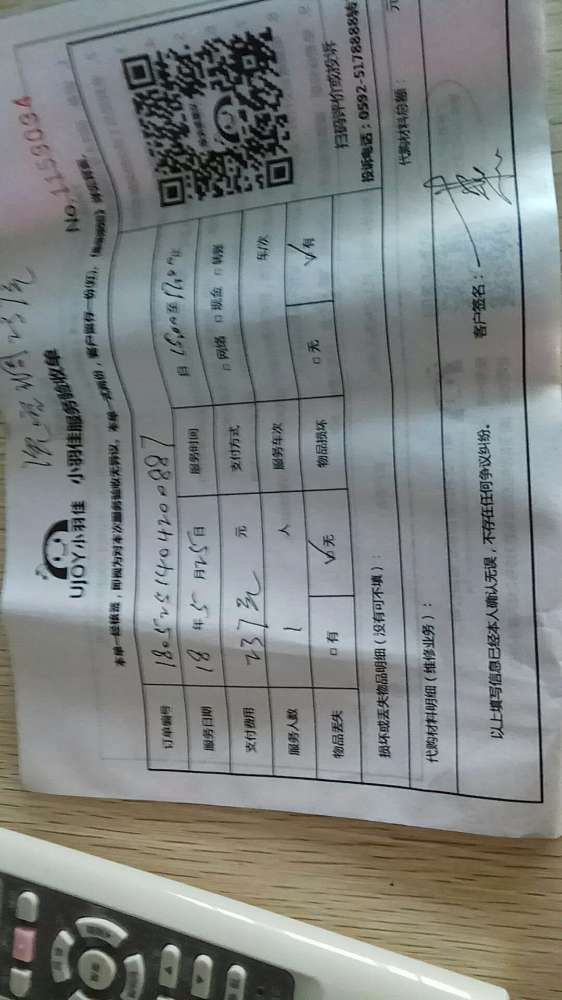 237元
No.1159094
UJOY小羽佳 小羽佳服务验收单
本单一经填签，即视为对本次服务验收无异议。本单一式两份，客户留存一份
订单编号 1805251404200887
服务日期 18年5月25日 服务时间 日15:00至17:00
支付费用 237元 元 支付方式 □网络 □现金 □转账
服务人数 1 人 服务车次 车/次
物品丢失 □有 ☑无 物品损坏 □无 ☑有
扫码评价或投诉
投诉电话：0592-5178888转
损坏或丢失物品明细（没有可不填）：
代购材料明细（维修业务）： 代购材料总额： 元
以上填写信息已经本人确认无误，不存在任何争议纠纷。 客户签名：